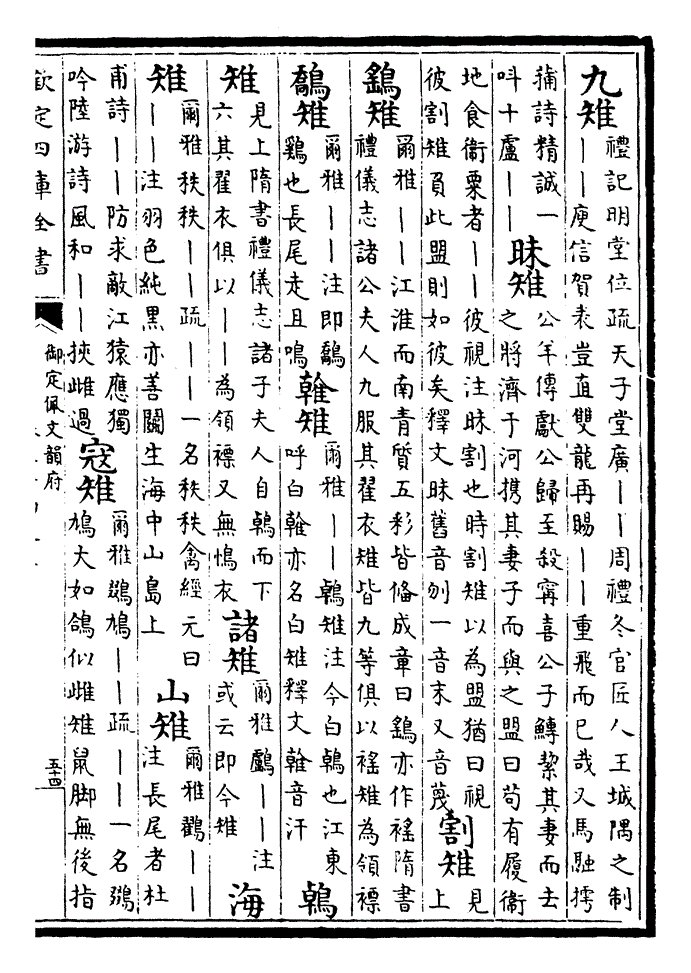 九雉
禮記明堂位疏天子堂廣丨丨周禮冬官匠人王城隅之制
丨丨庾信賀表豈直雙龍再賜丨丨重飛而已哉又馬融摴
蒱詩精誠一
呌十盧丨丨
昧雉
公羊傳獻公歸至殺寗喜公子鱄挈其妻而去
之將濟于河携其妻子而與之盟曰苟有履衞
地食衞粟者丨丨彼視注昧割也時割雉以為盟猶曰視
彼割雉負此盟則如彼矣釋文昧舊音刎一音末又音蔑
割雉
見
上
鷂雉
爾雅丨丨江淮而南青質五彩皆備成章曰鷂亦作褕隋書
禮儀志諸公夫人九服其翟衣雉皆九等俱以褕雉為領褾
鷮雉
爾雅丨丨注即鷮
雞也長尾走且鳴
鶾雉
爾雅丨丨鵫雉注今白鵫也江東
呼白鶾亦名白雉釋文鶾音汗
鵫
雉
見上隋書禮儀志諸子夫人自鵫而下
六其翟衣俱以丨丨為領褾又無㡓衣
諸雉
爾雅鸕丨丨注
或云即今雉
海
雉
爾雅秩秩丨丨疏丨丨一名秩秩禽經元曰
丨丨注羽色純黑亦善鬭生海中山島上
山雉
爾雅鸐丨丨
注長尾者杜
甫詩丨丨防求敵江猿應獨
吟陸游詩風和丨丨挾雌過
寇雉
爾雅鵽鳩丨丨疏丨丨一名鵽
鳩大如鴿似雌雉鼠脚無後指
欽定四庫全書
御定佩文韻府
五十四